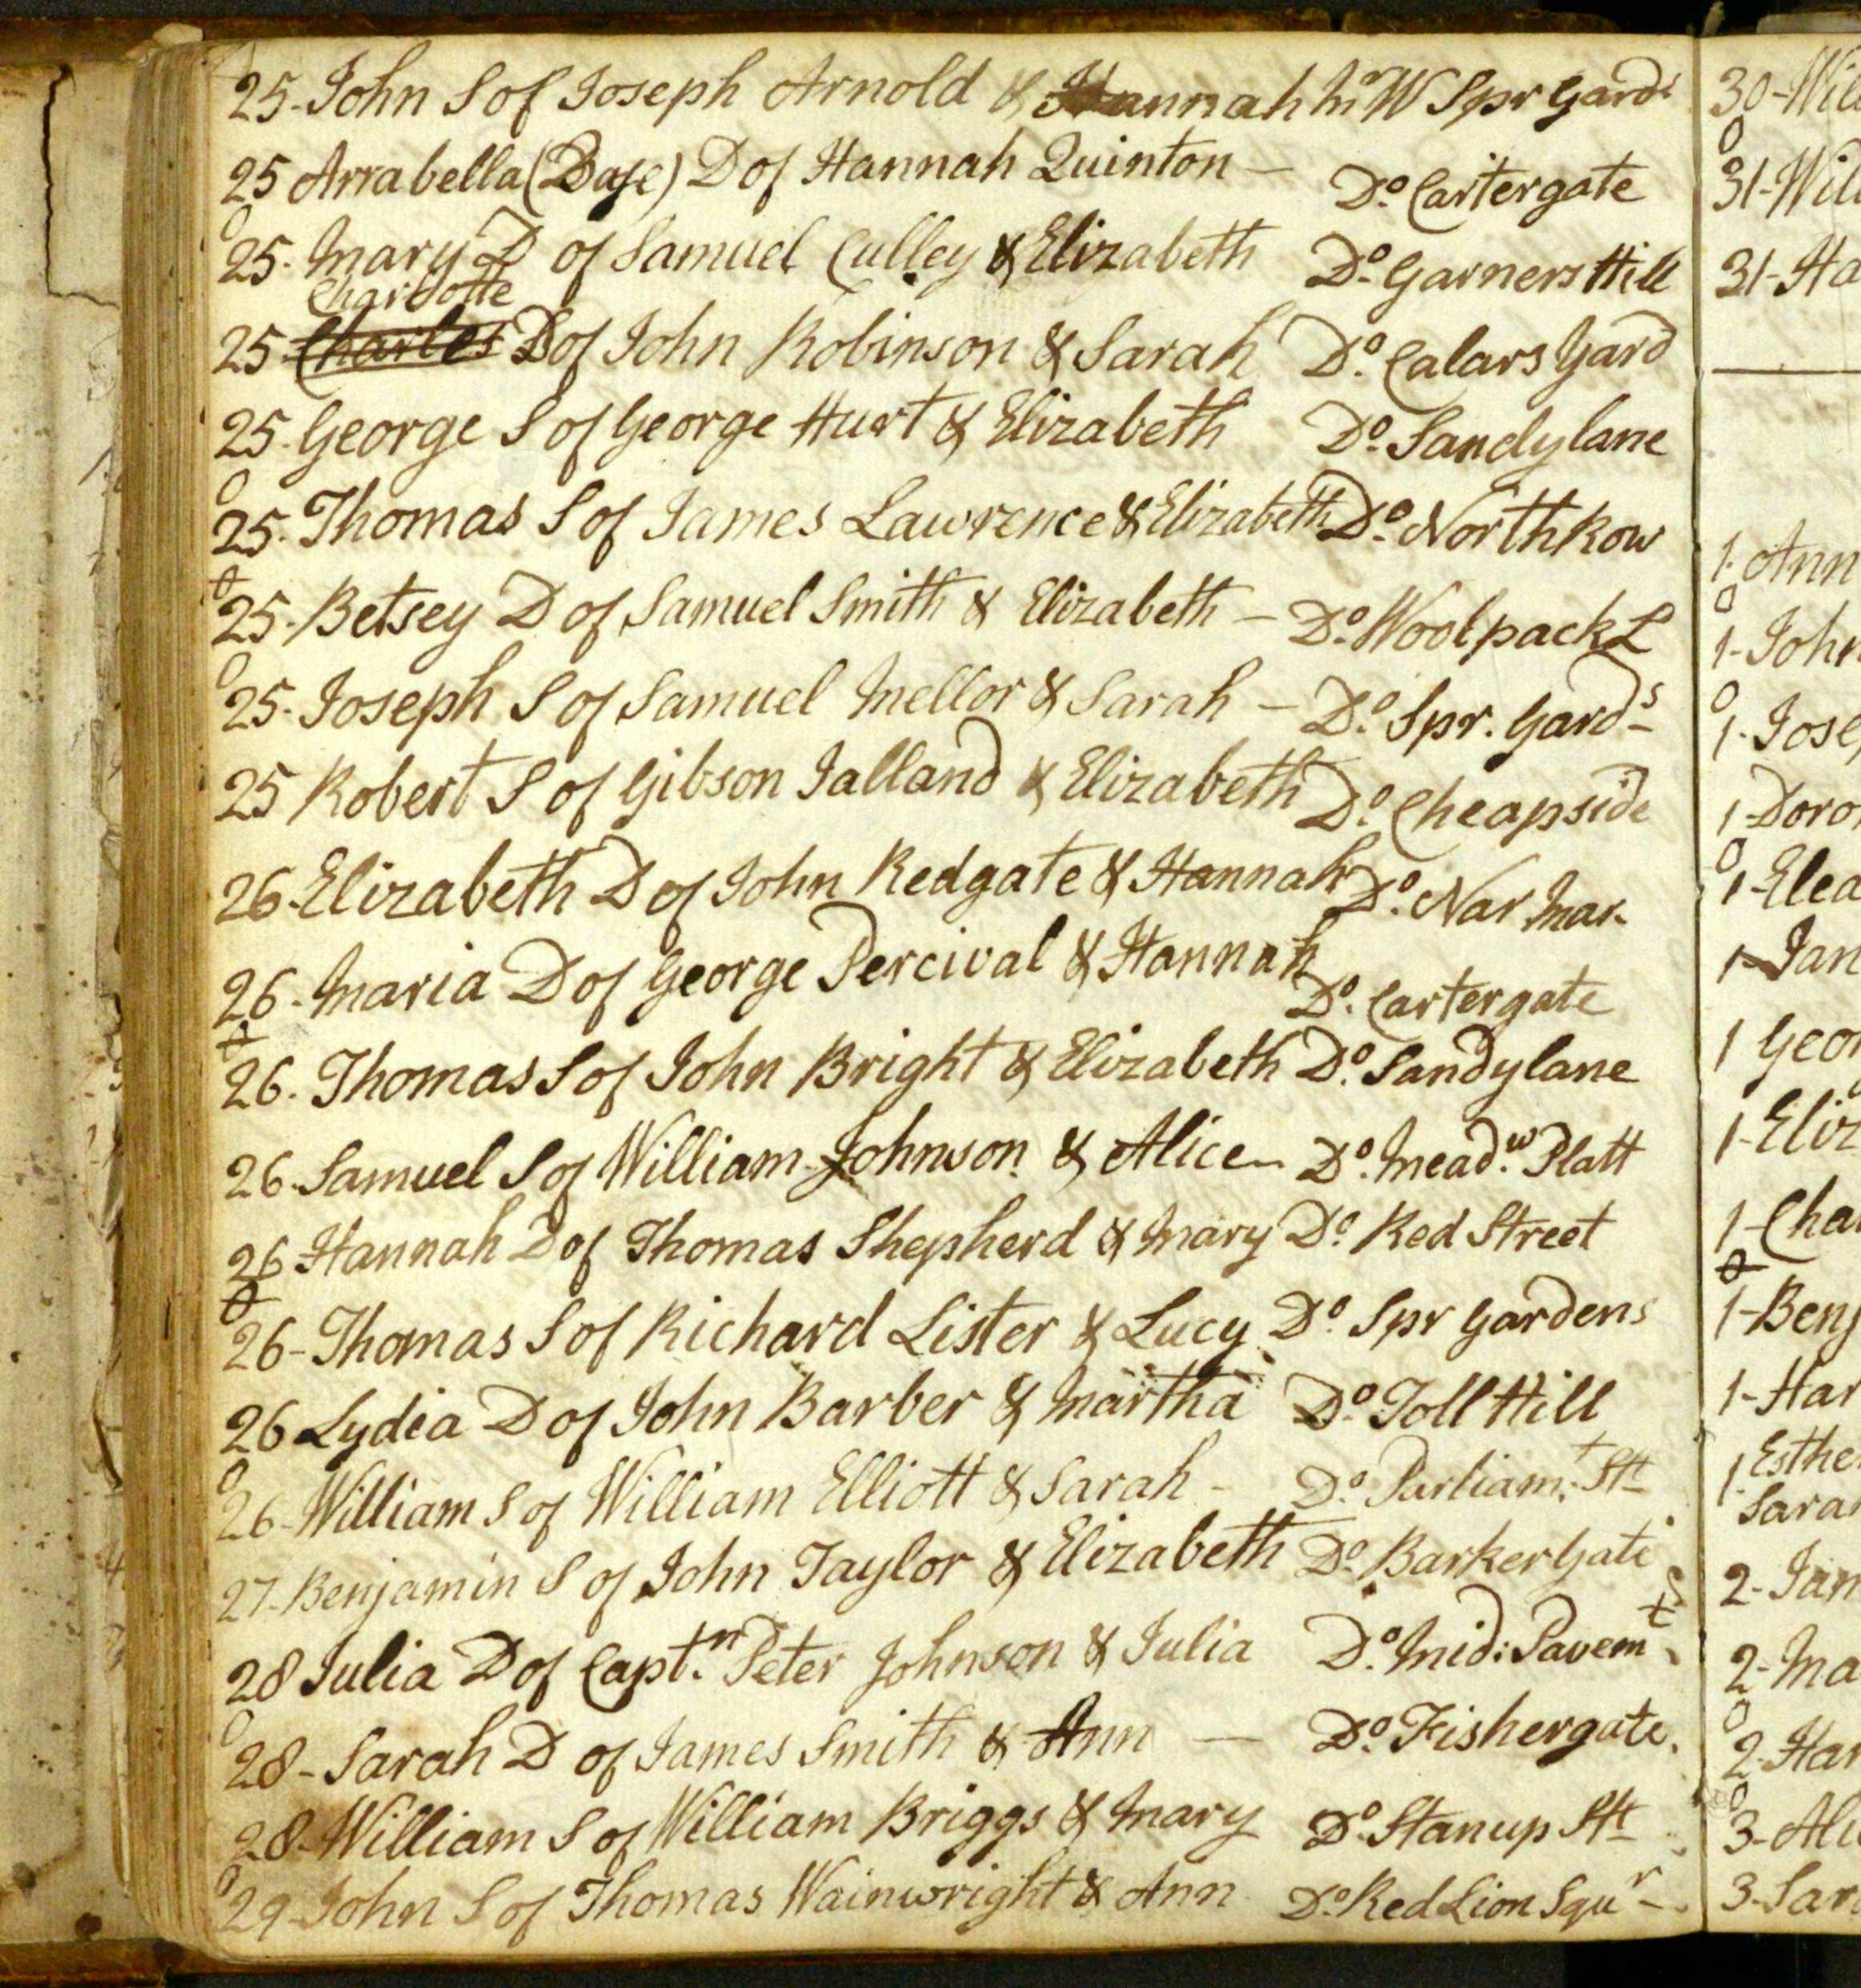 25-John S of Joseph Arnold & Hannah W Spr Gards
25 Arrabella (Base) D of Hannah Quinton - Do. Cartergate
25. Mary D of Samuel Culley & Elizabeth Do. Garners Hill
Charlotte
25 Charles D of John Robinson & Sarah Do. Calars Yard
25. George S of George Hurt & Elizabeth Do. Sandy lane
25. Thomas S of James Lawrence & Elizabeth Do. North Row
25. Betsey D of Samuel Smith & Elizabeth - Do. Woolpack L
25. Joseph S of Samuel Mellor & Sarah - Do. Spr. Gards
25 Robert S of Gibson Jalland & Elizabeth Do. Cheapside
26-Elizabeth D of John Redgate & Hannah Do. Nar Mar.
26. Maria D of George Percival & Hannah Do. Cartergate
26. Thomas S of John Bright & Elizabeth Do. Sandy lane
26. Samuel S of William Johnson & Alice - Do. Meadw Platt
26 Hannah D of Thomas Shepherd & Mary Do. Red Street
26-Thomas S of Richard Lister & Lucy Do. Spr Gardens
26 Lydia D of John Barber & Martha Do. Toll Hill
26-William S of William Elliott & Sarah - Do. Parliamt. Stt
27-Benjamin S of John Taylor & Elizabeth Do. Barker Gate
28 Julia D of Captn. Peter Johnson & Julia Do. Mid: Pavemt
28-Sarah D of James Smith & Ann - Do. Fishergate.
28-William S of William Briggs & Mary Do. Stanup Stt
29-John S of Thomas Wainwright & Ann Do. Red Lion Squr -
30-Wil
31-Wil
31-Ha
1. Ann
1-John
1. Jose
1-Doro
1-Elea
1-Jan
1 Geor
1-Eliz
1-Cha
1-Benj
1-Har
1. Esthe
Sarah
2-Jam
2-Ma
2-Har
3-Ali
3-Sar